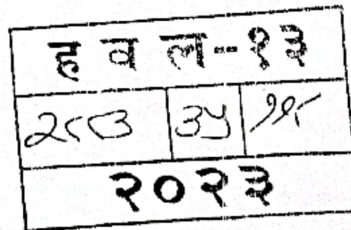 ह व ल-१३
२८८३ ३५
२०२३